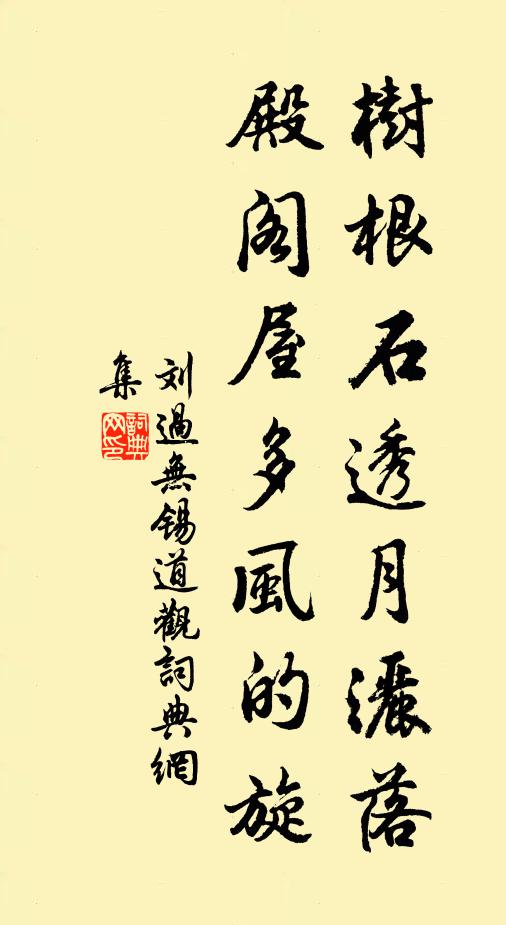 樹根石透月灑落
殿阁屋多風的旋
刘過無锡道觀詞典網
集
詞典网印